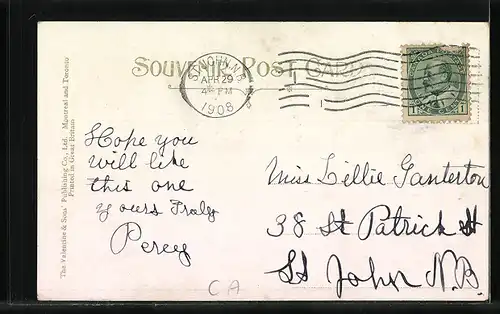 SOUVENIR POST CARD
ST. JOHN, N.B.
APR 29
4 PM
1908
1
Hope you
will like
this one
yours Truly
Percy
Miss Lillie Ganterton
38 St Patrick St
St John N.B.
CA
The Valentine & Sons' Publishing Co., Ltd. Montreal and Toronto
Printed in Great Britain